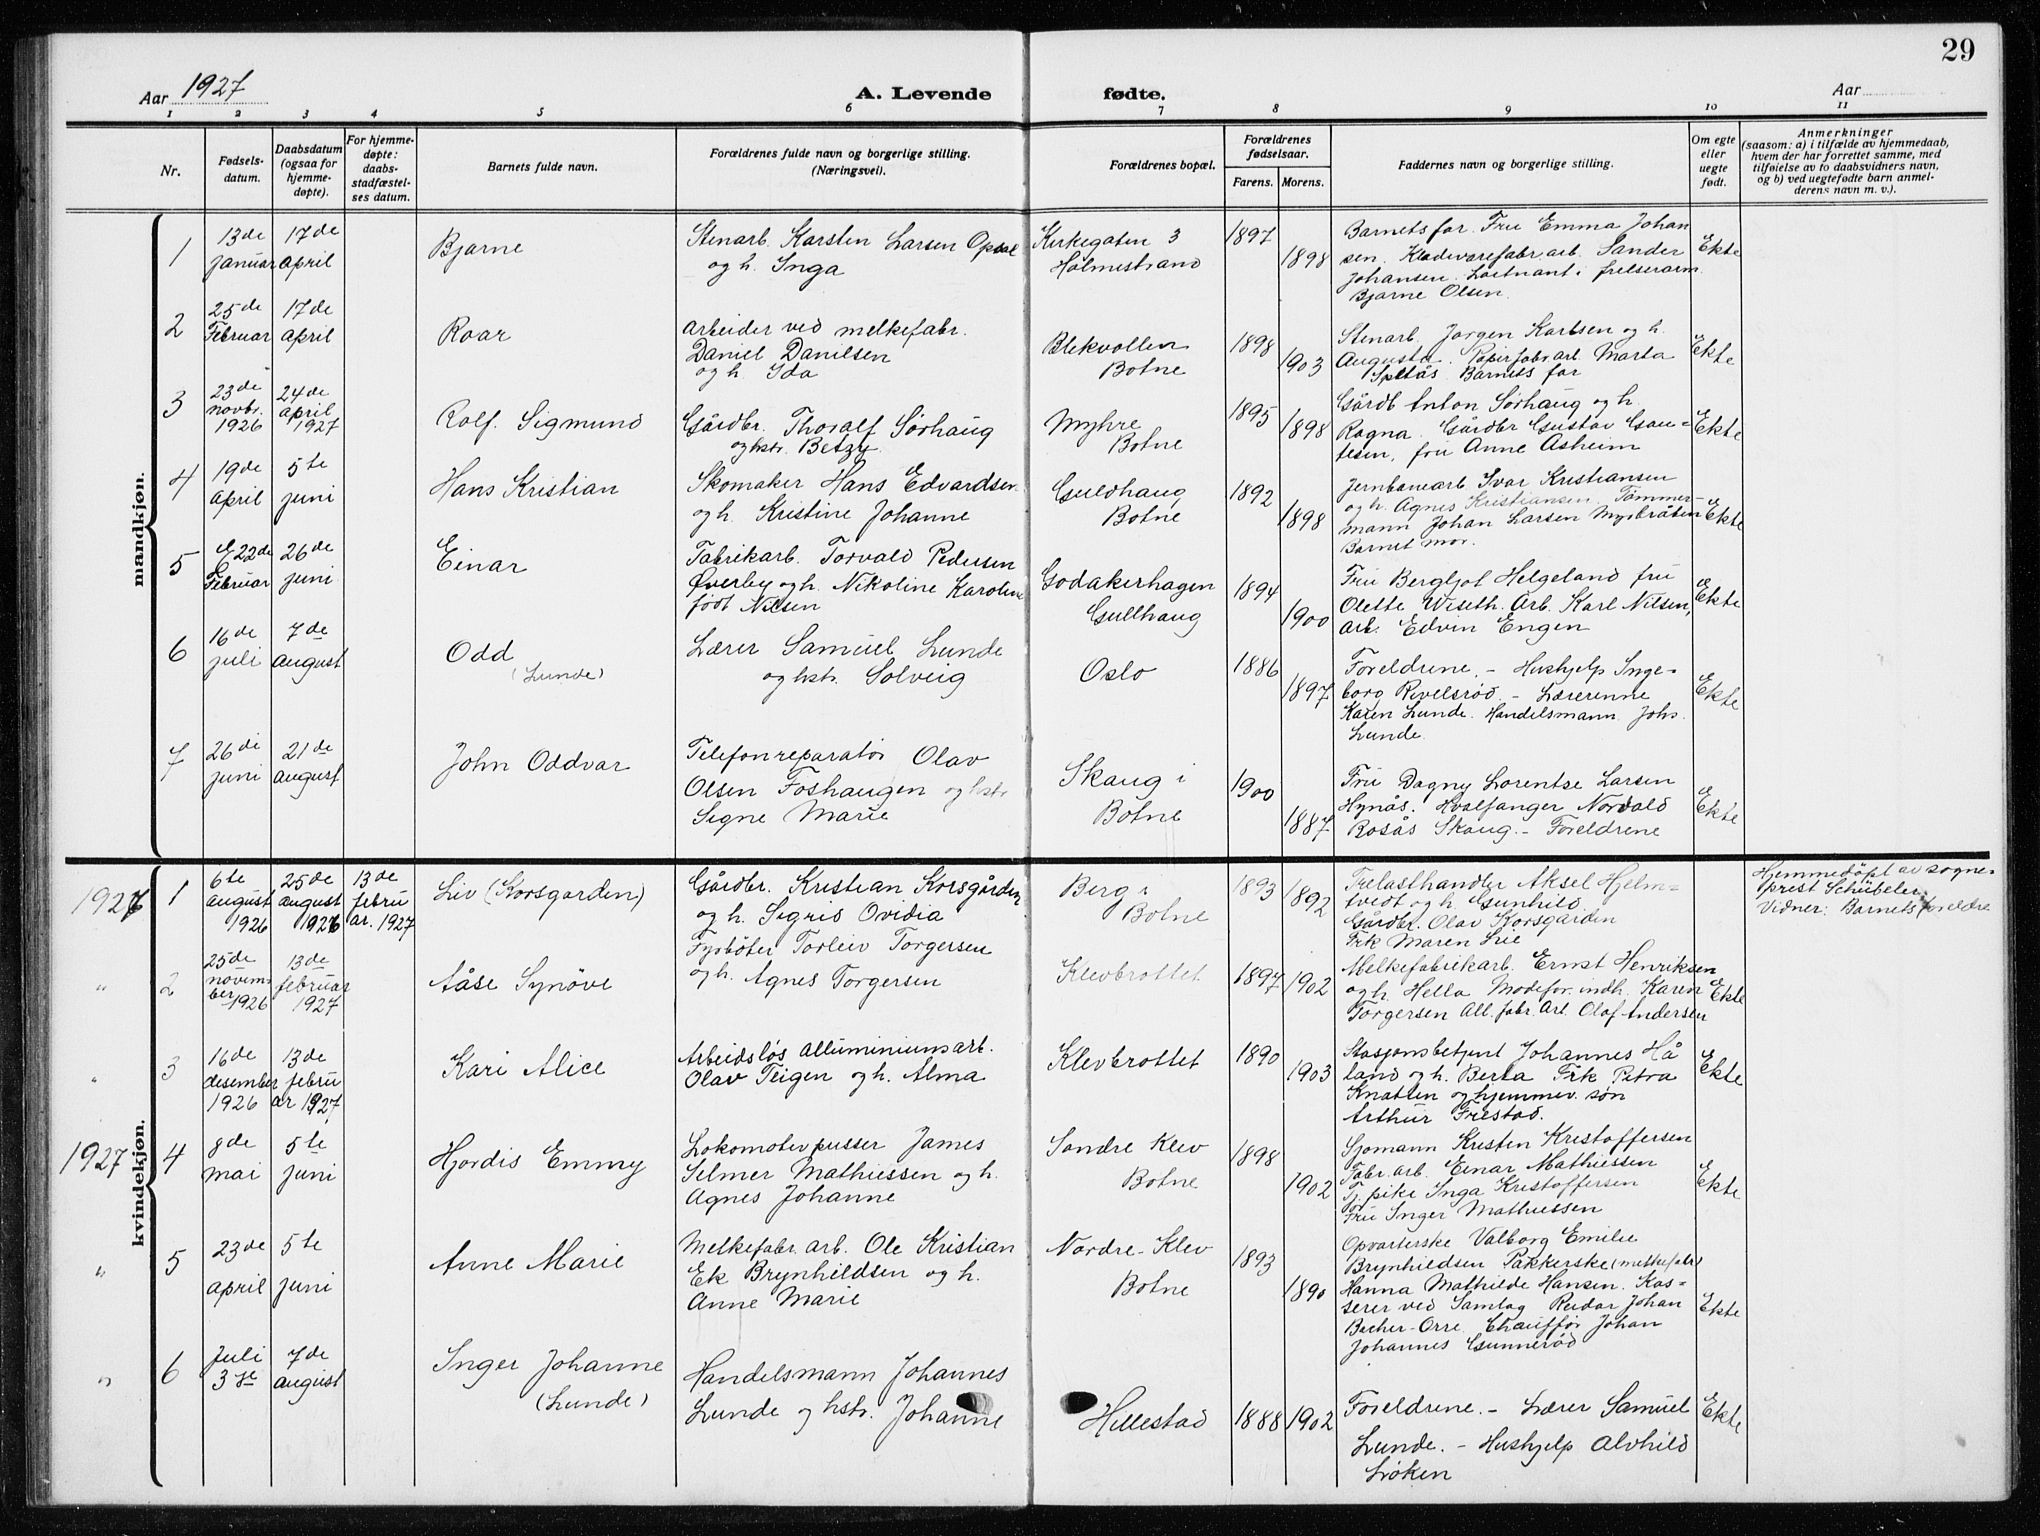 29
Aar 1927
A. Levende fødte.
Aar
1 2 3 4 5 6 7 8 9 10 11
Nr.
Fødsels-
datum.
Daabsdatum
(ogsaa for
hjemme-
døpte).
For hjemme-
døpte:
daabs-
stadfæstel-
ses datum.
Barnets fulde navn.
Forældrenes fulde navn og borgerlige stilling.
(Næringsvei).
Forældrenes bopæl.
Forældrenes
fødselsaar.
Farens. Morens.
Faddernes navn og borgerlige stilling.
Om egte
eller
uegte
født.
Anmerkninger
(saasom: a) i tilfælde av hjemmedaab,
hvem der har forrettet samme, med
tilføielse av to daabsvidners navn,
og b) ved uegtefødte barn anmel-
derens navn m. v.).
mandkjøn.
1
13de
januar
17de
april
Bjarne
Stenarb. Karsten Larsen Opsal
og h. Inga
Kirkegaten 3
Holmestrand
1897
1898
Barnets far. Fru Emma Johan
sen. Kladevarefabr. arb. Sander
Johansen. Løitnant i frelserarm.
Bjarne Olsen.
Ekte
2
25de
Februar
17de
april
Roar
arbeider ved melkefabr.
Daniel Danilsen
og h. Ida
Blekvollen
Botne
1898
1903
Stenarb. Jørgen Karlsen og h.
Augusta. Papirfabr. arb. Marta
Barnets far
Ekte
3
23de
novbr.
1926
24de
april
1927
Rolf. Sigmund
Gårdbr. Thoralf Sørhaug
og hstr. Betzy
Myhre
Botne
1895
1898
Gårdb Anton Sørhaug og h.
Ragna. Gårdbr Gustav Gau-
tesen, fru Anne Asheim
Ekte
4
19de
april
5te
juni
Hans Kristian
Skomaker Hans Edvardsen
og h. Kristine Johanne
Guldhaug
Botne
1892
1898
Jernbanearb Ivar Kristiansen
og h. Agnes Kristiansen. Tømmer-
mann Johan Larsen Myrbråten
Barnet mor.
Ekte
5
22de
Februar
26de
juni
Einar
Fabrikarb. Torvald Pedersen
Øverby og h. Nikoline Karoline
født Nilsen
Godakerhagen
Gullhaug
1894
1900
Fru Bergljot Helgeland fru
Olette Wiseth. Arb. Karl Nilsen,
arb. Edvin Engen
Ekte
6
16de
juli
7de
august
Odd
(Lunde)
Lærer Samuel Lunde
og hstr. Solveig
Oslo
1886
1897
Foreldrene. – Hushjelp Inge-
borg Revelsrød. – Lærerenne
Karen Lunde. Handelsmann Johs.
Lunde.
Ekte
7
26de
juni
21de
august
John Oddvar
Telefonreparatør Olav
Olsen Foshaugen og hstr
Signe Marie
Skaug i
Botne
1900
1887
Fru Dagny Lorentse Larsen
Hynås. Hvalfanger Nordald
Rosås Skaug. – Foreldrene
Ekte
kvindekjøn.
1926
1
6te
august
1926
25de
august
1926
13de
febru
ar. 1927
Liv (Korsgarden)
Gårdbr. Kristian Korsgården
og h. Sigrid Ovidia
Berg i
Botne
1893
1892
Trelasthandler Aksel Hjelm-
tvedt og h. Gunhild.
Gårdbr. Olav Korsgarden
Frk Maren Lie
Hjemmedøpt av sogne-
prest Schübeler.
Vidner: Barnets foreldre
"
2
25de
novem-
ber 1926
13de
februar
1927
Aåse Synøve
Fyrbøter Torleiv Torgersen
og h. Agnes Torgersen
Klevbrottet
1897
1902
Melkefabrikarb. Ernst Henriksen
og h. Hella Modefor. indh. Karen
Torgersen All. fabr. Arb. Olaf Andersen
Ekte
"
3
16de
desember
1926
13de
febru
ar 1927
Kari Alice
Arbeidsløs alluminiumsarb.
Olav Teigen og h. Alma
Klevbrottet
1890
1903
Stasjonsbetjent Johannes Hå
land og h. Berta Frk Petra
Knatten og hjemmev. søn
Arthur Frestad.
Ekte
1927
4
8de
mai
5te
juni
Hjørdis Emmy
Lokomotivpusser James
Selmer Mathiessen og h.
Agnes Johanne
Søndre Klev
Botne
1898
1902
Sjømann Kristen Kristoffersen
Fabr. arb. Einar Mathiessen
Tj. pike Inga Kristoffersen
Fru Inger Mathiessen
Ekte
"
5
23de
april
5te
juni
Anne Marie
Melkefabr. arb. Ole Kristian
Ek Brynhildsen og h.
Anne Marie
Nordre-Klev
Botne
1893
1890
Opvarterske Valborg Emilie
Brynhildsen Pakkerske (melkefabr)
Hanna Mathilde Hansen. Kas-
serer ved Samlag Reidar Johan
Bacher-Orre. Chauffør Johan
Johannes Gunnerød
Ekte
"
6
Juli
3de
7de
august
Inger Johanne
(Lunde)
Handelsmann Johannes
Lunde og hstr. Johanne
Hillestad
1888
1902
Foreldrene. – Lærer Samuel
Lunde. – Hushjelp Alvhild
Løken
Ekte